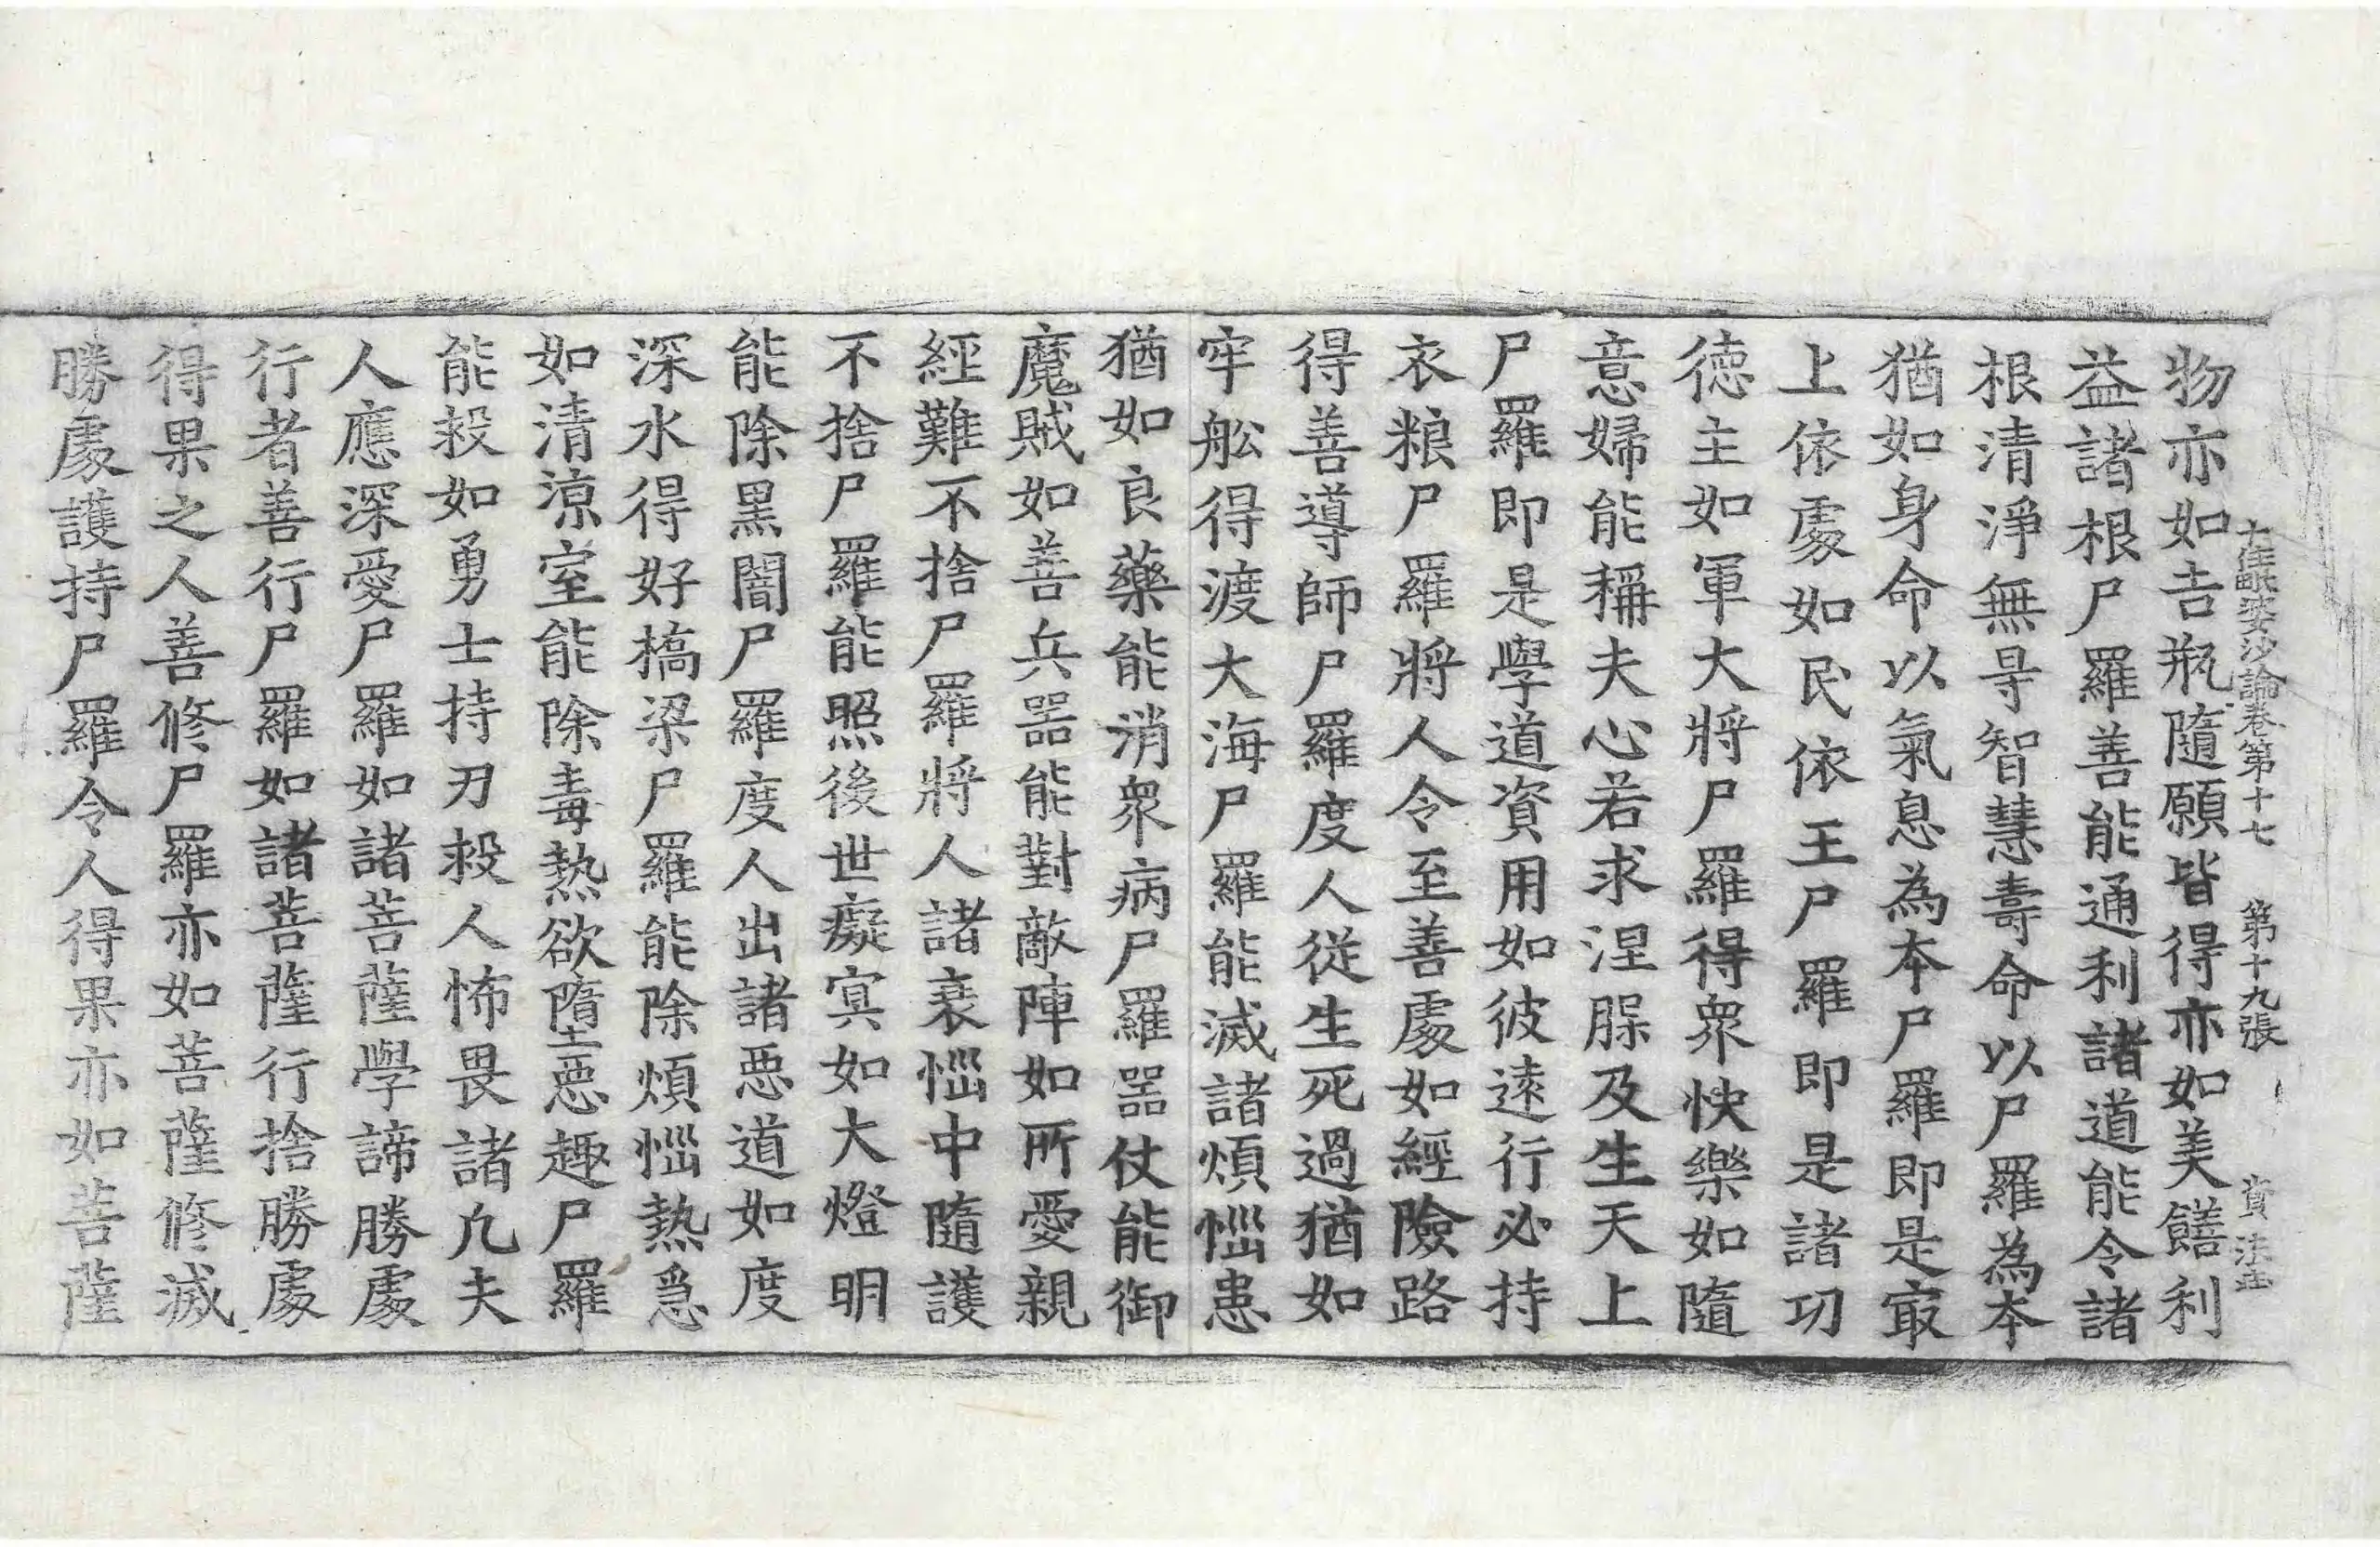 十住毗婆沙論卷第十七　第十九張　賁
物亦如吉瓶隨願皆得亦如美饍利
益諸根尸羅善能通利諸道能令諸
根清淨無㝵智慧壽命以尸羅為本
猶如身命以氣息為本尸羅即是㝡
上依處如民依王尸羅即是諸功
徳主如軍大將尸羅得衆快樂如隨
意婦能稱夫心若求涅脲及生天上
尸羅即是學道資用如彼逺行必持
衣粮尸羅將人令至善處如經險路
得善導師尸羅度人従生死過猶如
牢舩得渡大海尸羅能滅諸煩惱患
猶如良藥能消衆病尸羅器仗能御
魔賊如善兵器能對敵陣如所愛親
經難不捨尸羅將人諸衰惱中隨護
不捨尸羅能照後世癡冥如大燈明
能除黒闇尸羅度人出諸惡道如度
深水得好橋梁尸羅能除煩惱熱急
如清涼室能除毒熱欲墮惡趣尸羅
能救如勇士持刃救人怖畏諸凡夫
人應深愛尸羅如諸菩薩學諦勝處
行者善行尸羅如諸菩薩行捨勝處
得果之人善修尸羅亦如菩薩修滅
勝處護持尸羅令人得果亦如菩薩